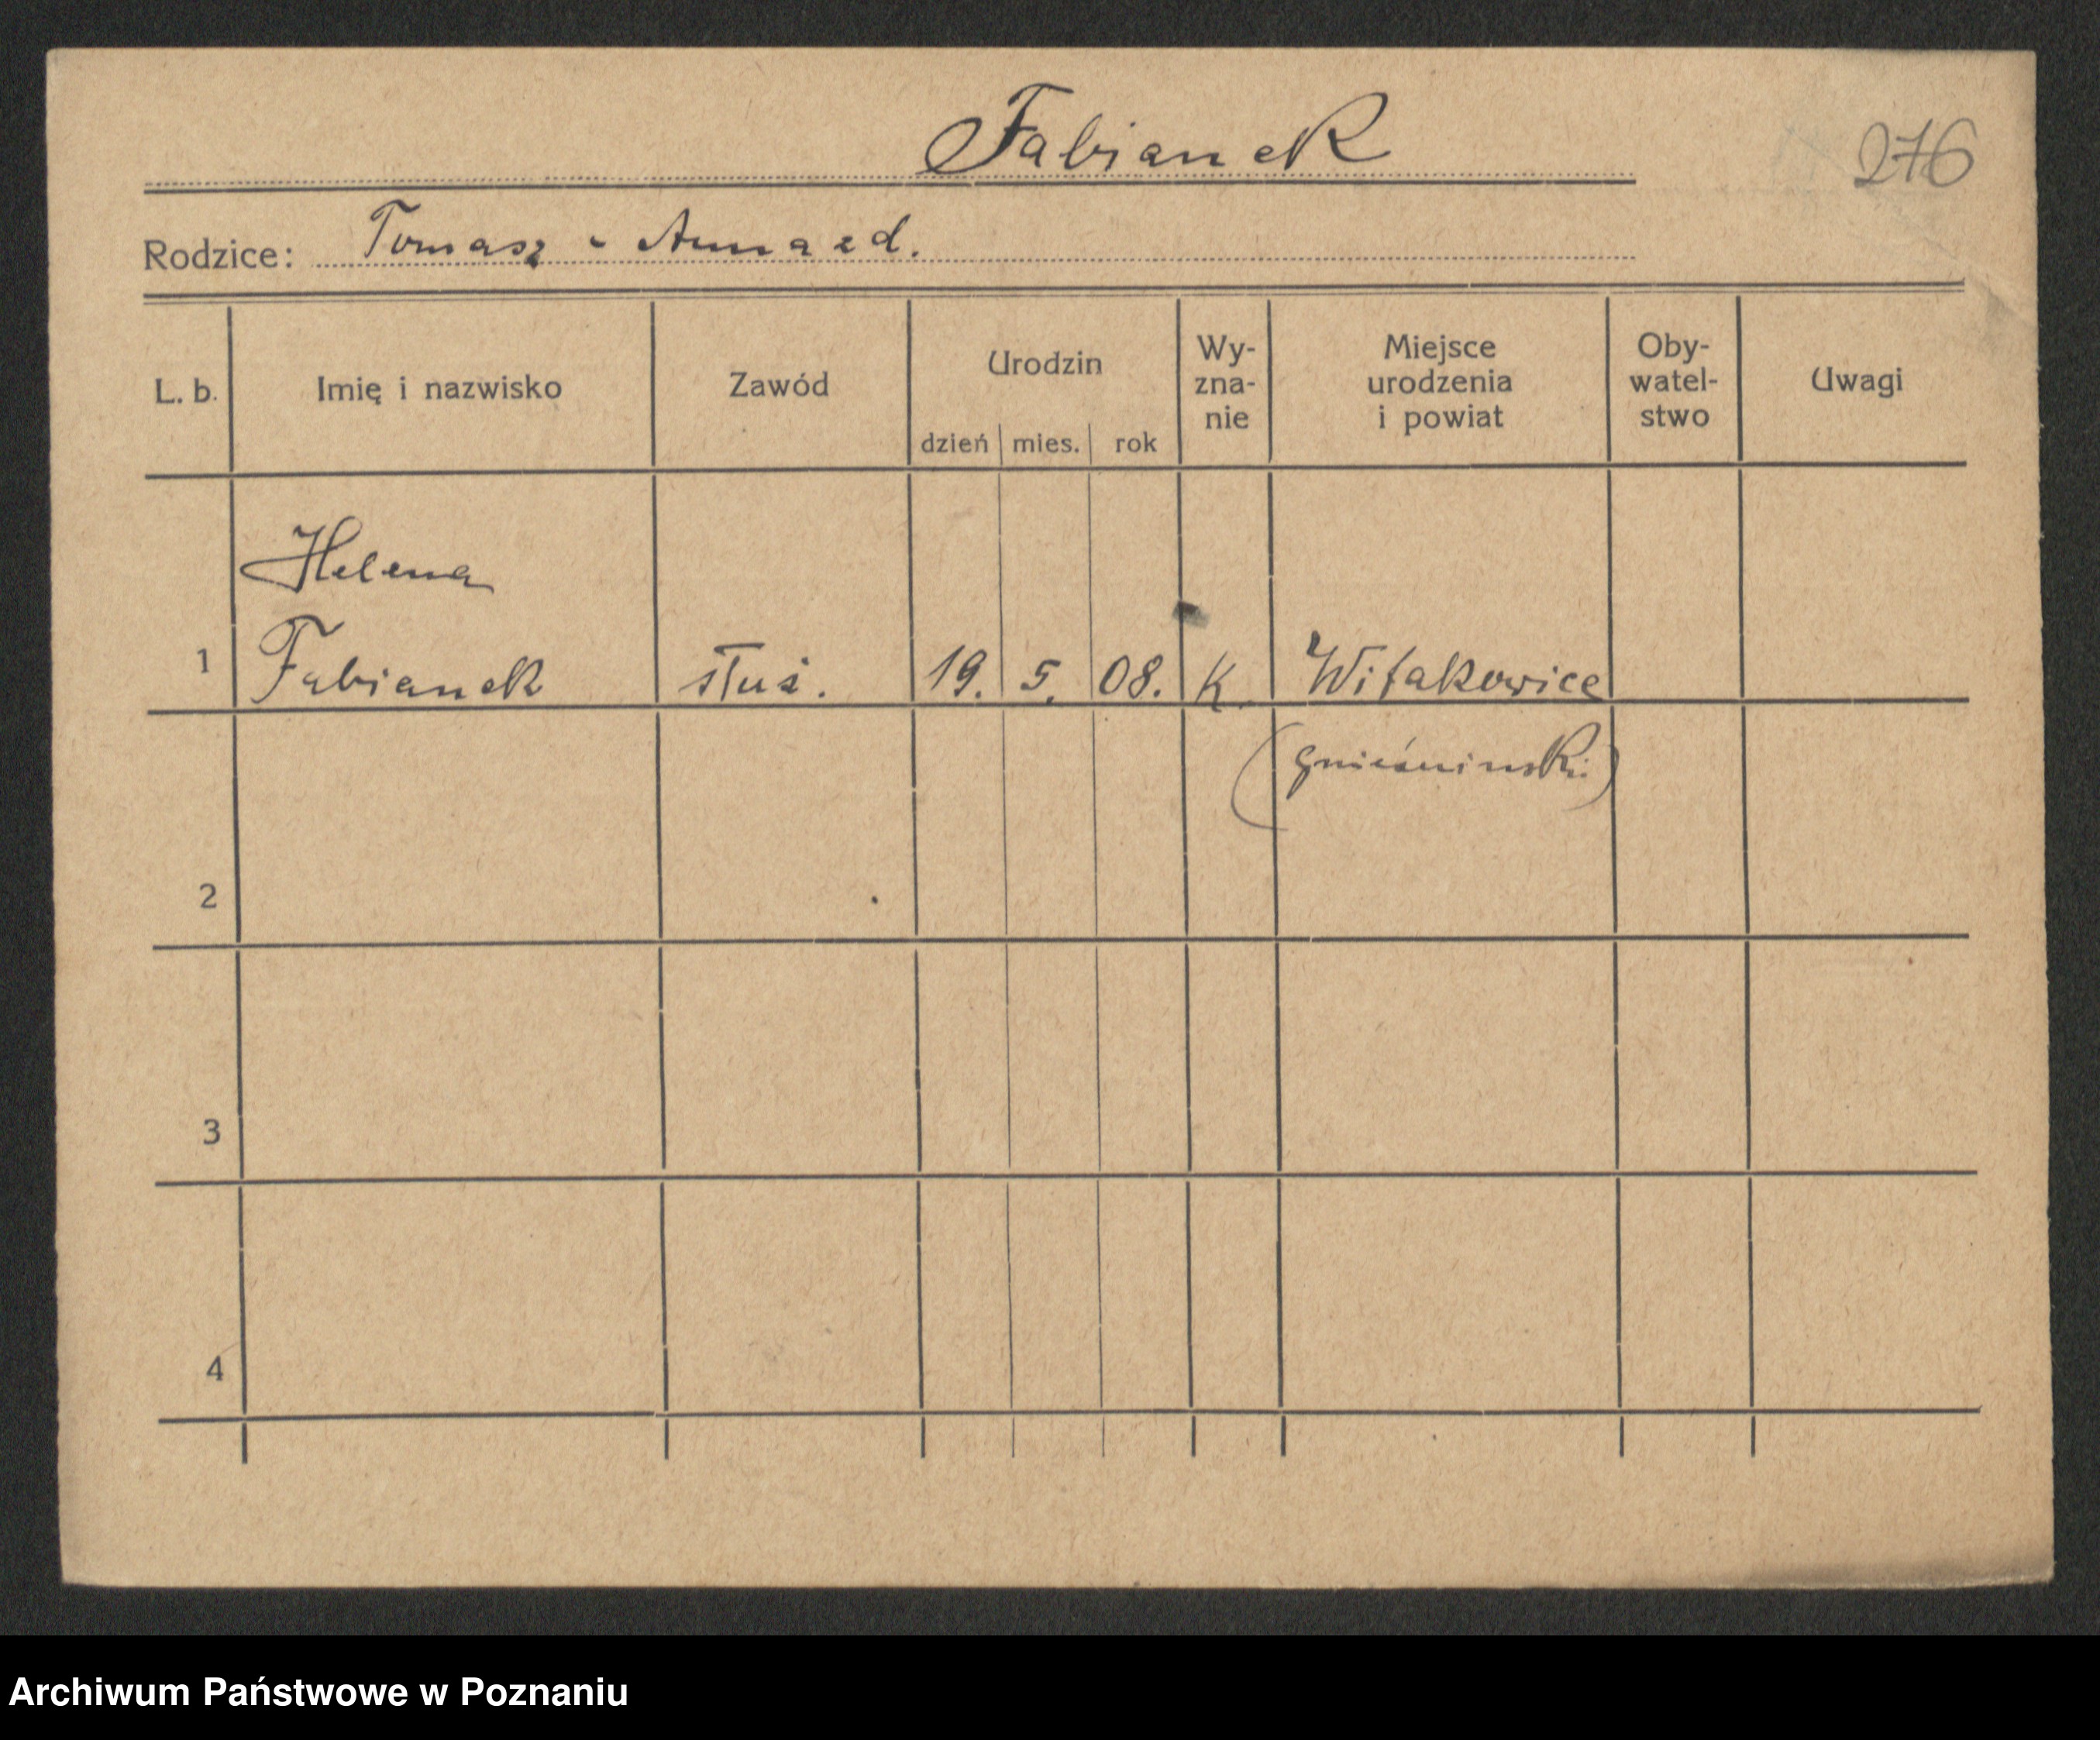 Fabianek
276
Rodzice: Tomasz i Anna zd.
L. b. Imię i nazwisko Zawód Urodzin dzień mies. rok Wy-zna-nie Miejsce urodzenia i powiat Oby-watel-stwo Uwagi
Helena
1 Fabianek służ. 19. 5. 08. K. Witakowice
(gnieźninski)
2
3
4
Archiwum Państwowe w Poznaniu